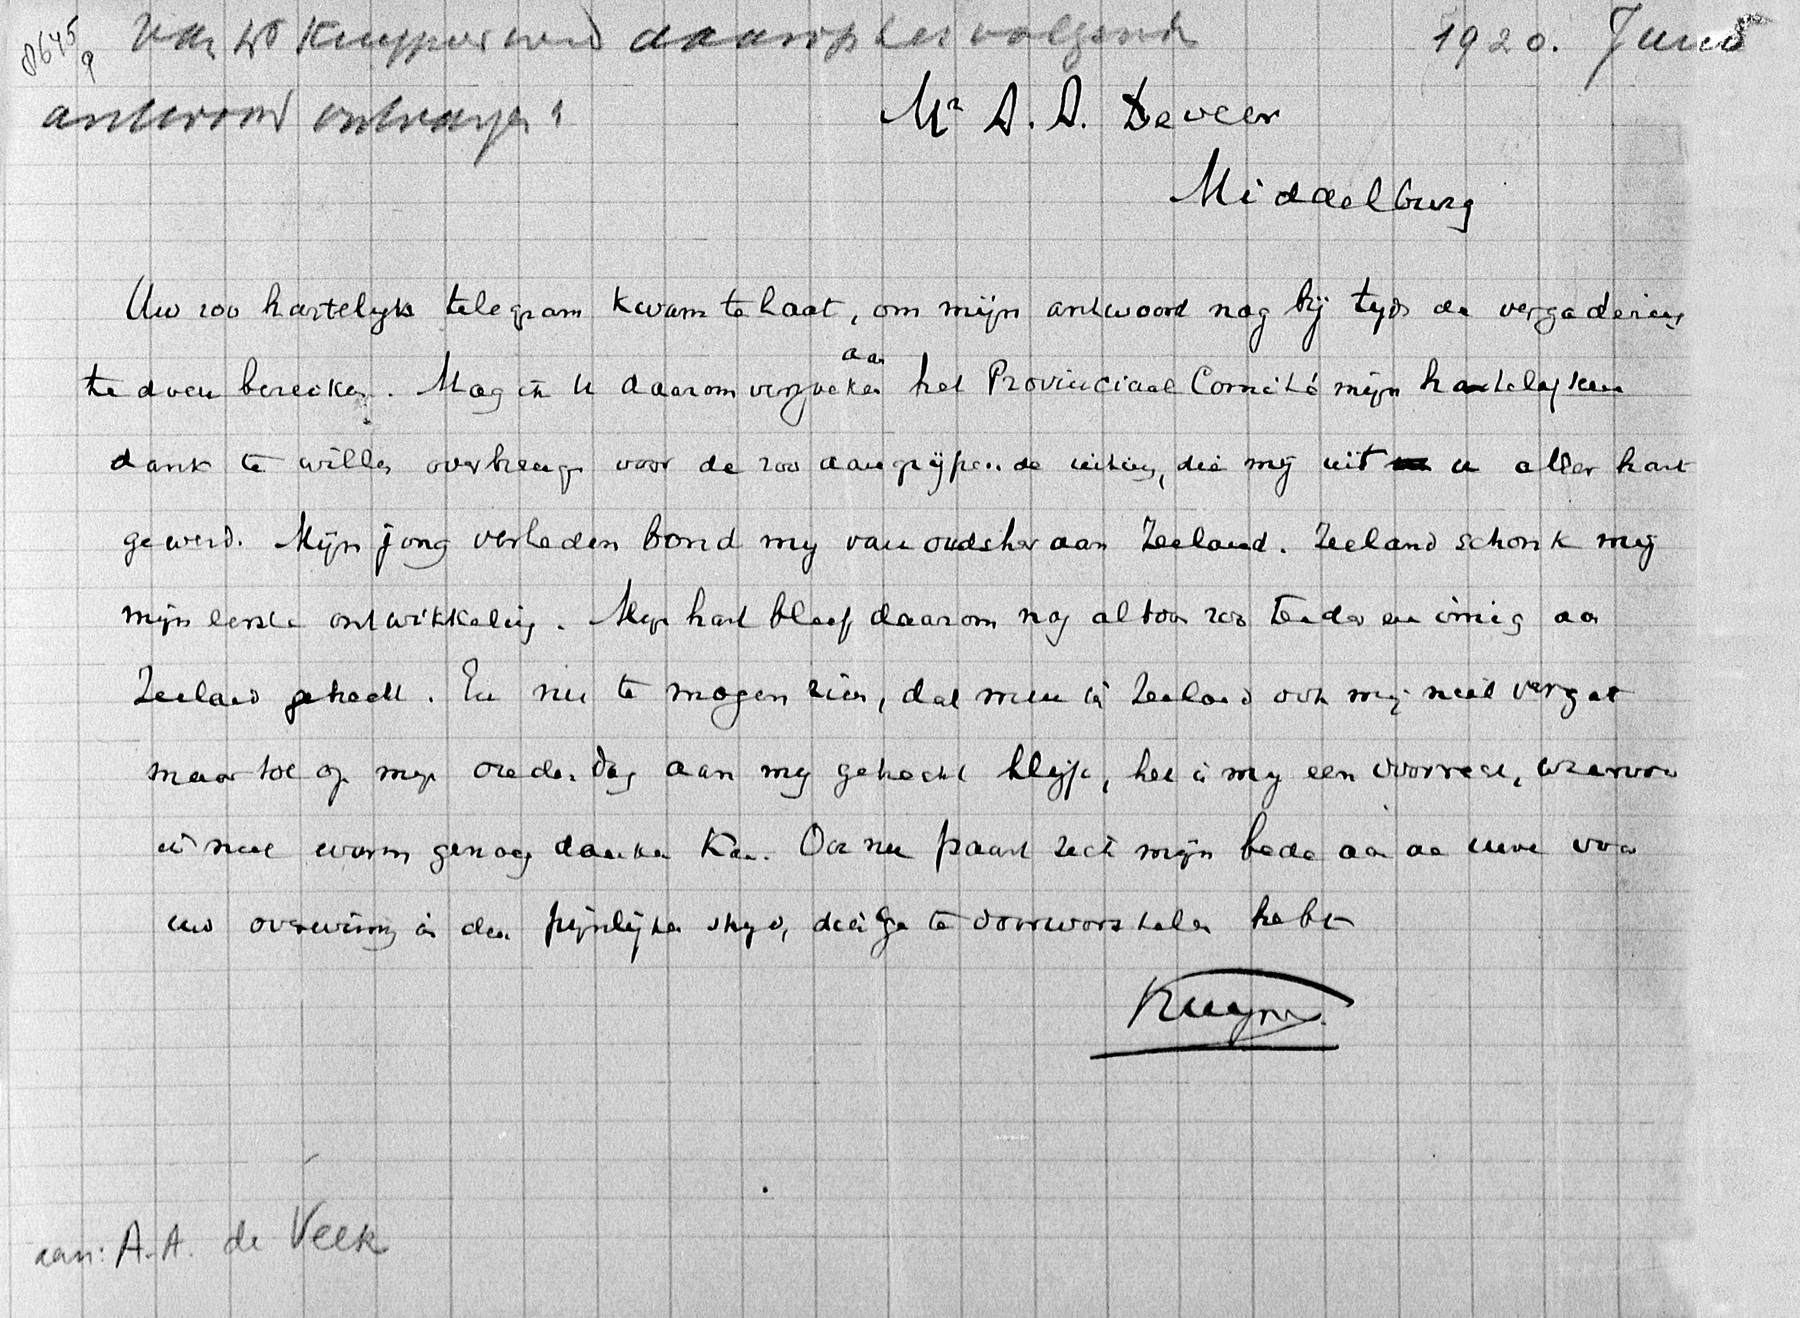 8645
9
Van Dr Kuyper werd daarop het volgende
1920. Juni
antwoord ontvangen:
Mr A. A. De Veer
Middelburg
Uw zoo hartelijk telegram kwam te laat, om mijn antwoord nog bij tijds de vergadering
te doen bereiken. Mag ik U daarom verzoeken aan het Provinciaal Comité mijn hartelijken
dank te willen overbrengen voor de zoo aangrijpende uiting, die mij uit u aller hart
gewerd. Mijn jong verleden bond mij van oudsher aan Zeeland. Zeeland schonk mij
mijn eerste ontwikkeling. Mijn hart bleef daarom nog altoos zoo teeder en innig aan
Zeeland gehecht. En nu te mogen zien, dat men in Zeeland ook mij niet vergat
maar tot op mijn ouden dag aan mij gehecht blijft, het is mij een voorrecht, waarvoor
ik niet warm genoeg danken kan. Ook nu paart zich mijn bede aan de uwe voor
uw overwinning in den pijnlijken strijd, dien Ge te doorworstelen hebt
Kuyper.
aan: A. A. de Veek